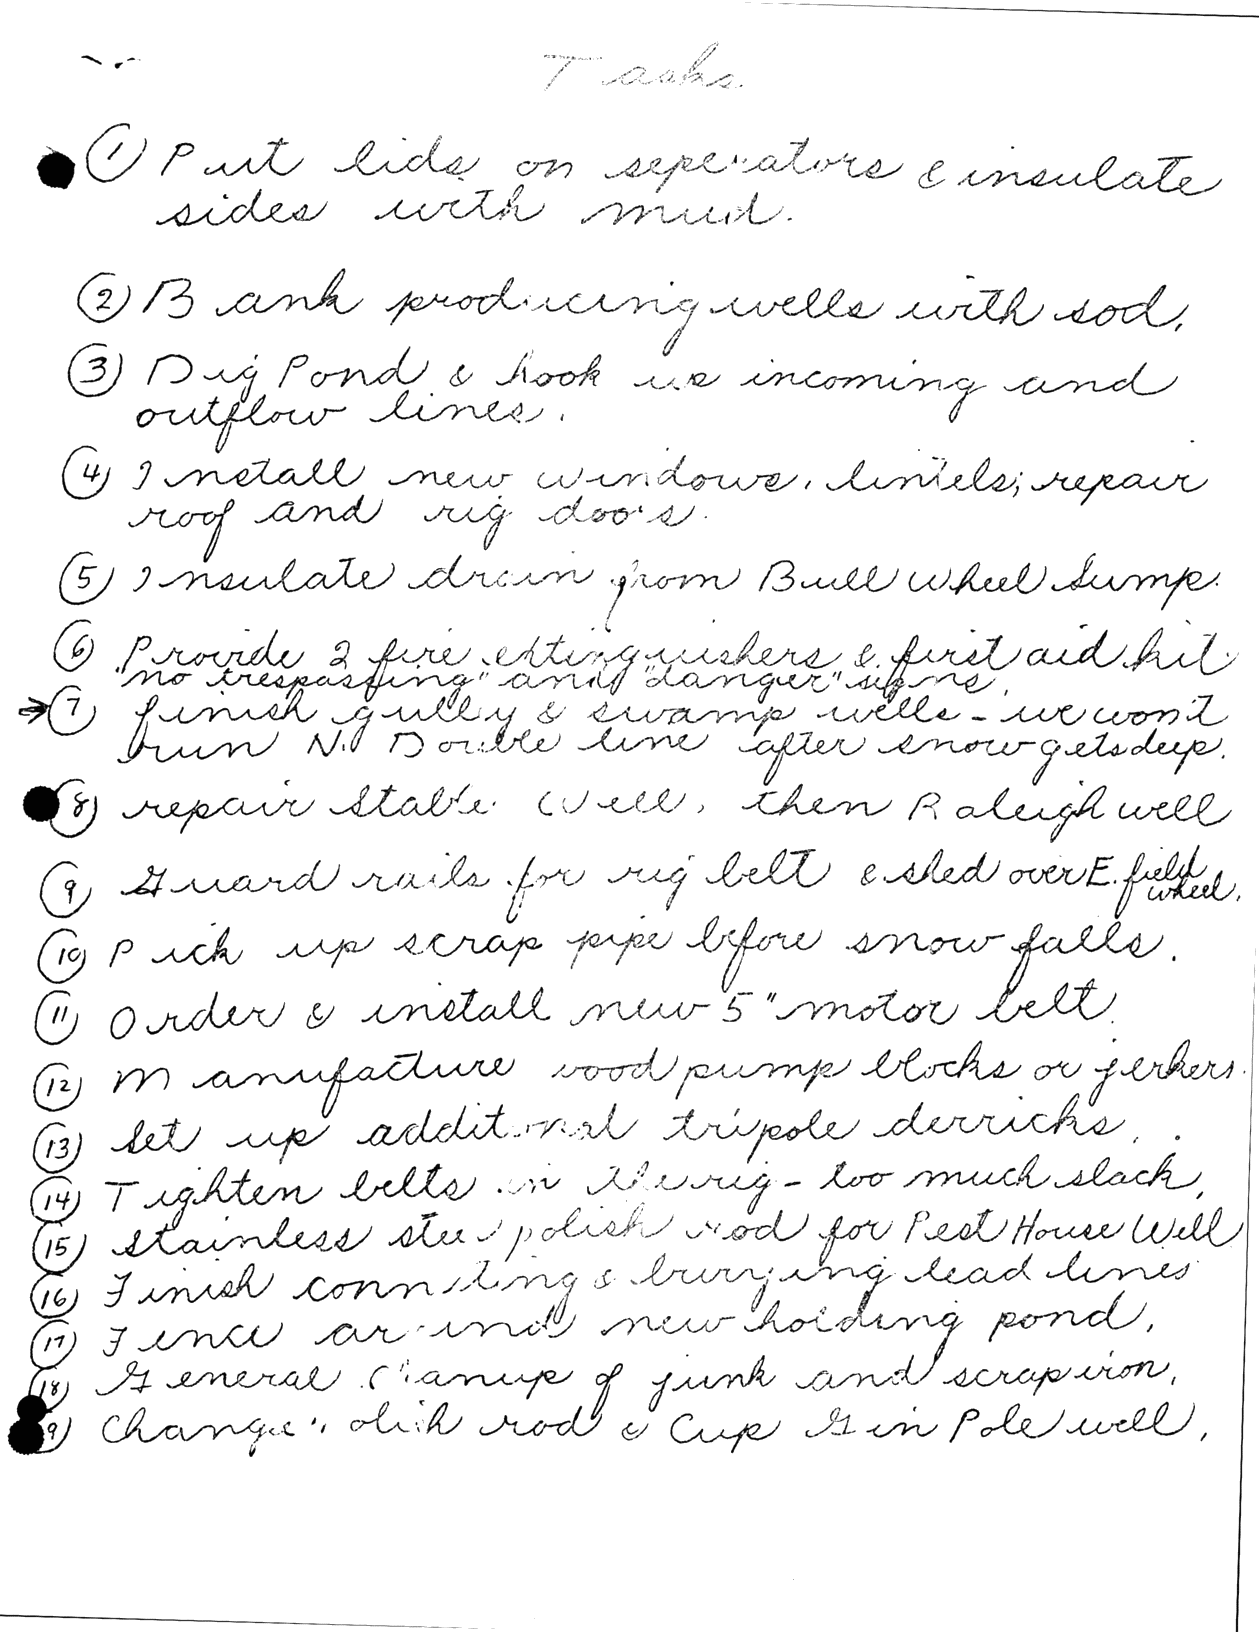 Tasks
① Put lids on seperators & insulate
sides with mud.
② Bank producing wells with sod.
③ Dig Pond & hook up incoming and
outflow lines.
④ Install new windows, lintels; repair
roof and rig doors.
⑤ Insulate drain from Bull wheel Sump.
⑥ Provide 2 fire extinguishers & first aid kit
"no trespassing" and "danger" signs.
→ ⑦ finish gully & swamp wells - we won't
run N. Double line after snow gets deep.
⑧ repair Stable Well, then Raleigh well
⑨ Guard rails for rig belt & shed over E. field
wheel.
⑩ Pick up scrap pipe before snow falls.
⑪ Order & install new 5" motor belt.
⑫ Manufacture wood pump blocks or jerkers.
⑬ Set up additional tripole derricks.
⑭ Tighten belts in the rig - too much slack.
⑮ stainless steel polish rod for Pest House Well
⑯ Finish connecting & burying lead lines
⑰ Fence around new holding pond.
⑱ General Cleanup of junk and scrap iron.
⑲ Change polish rod & Cup Gin Pole well.